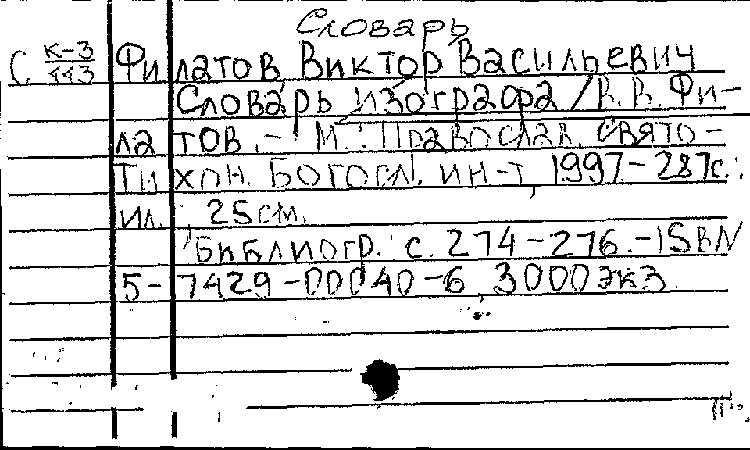 Словарь
С К-3 Филатов, Виктор Васильевич
443
Словарь изографа / В. В. Фи-
латов. - М.: Православ. Свято-
Тихон. Богосл. ин-т, 1997 - 287с.:
ил., 25 см.
Библиогр.: с. 274-276. - ISBN
5-7429-00040-6, 3000 экз